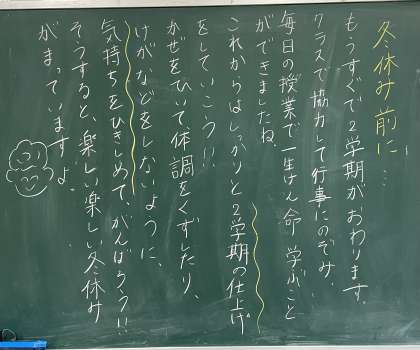 冬休み前に…
もうすぐで2学期がおわります。
クラスで協力して行事にのぞみ、
毎日の授業で一生けん命学ぶこと
ができましたね。
これからはしっかりと2学期の仕上げ
をしていこう!!
かぜをひいて体調をくずしたり、
けがなどをしないように、
気持ちをひきしめて、がんばろう!!
そうすると、楽しい楽しい冬休み
がまっていますよ。